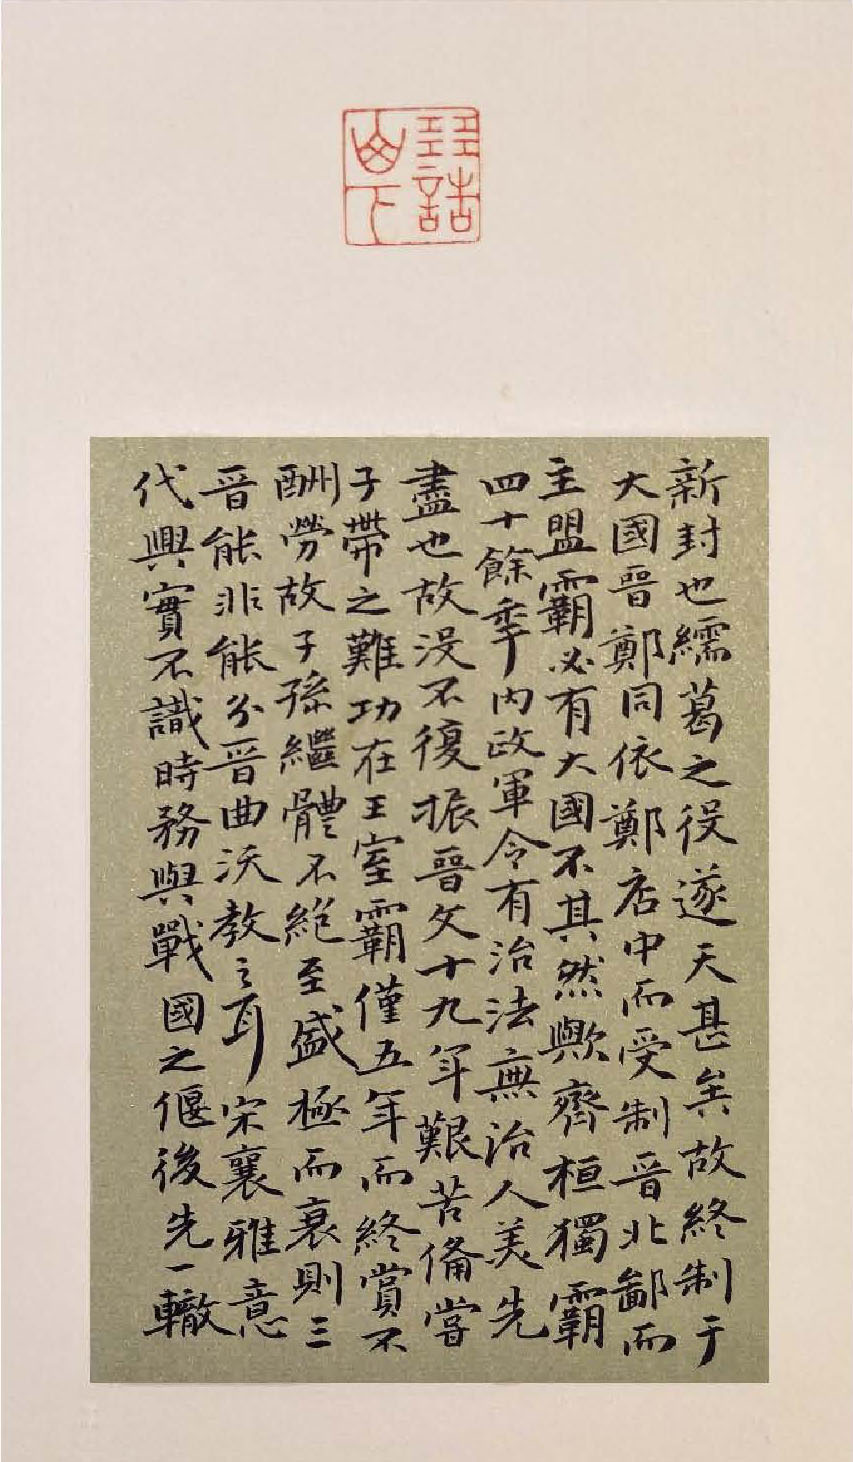 新封也繻葛之役遂夭甚矣故終制于
大國晉鄭同依鄭居中而受制晉北鄙而
主盟霸必有大國不其然歟齊桓獨霸
四十餘季內政軍令有治法無治人美先
盡也故没不復振晉文十九年艱苦備嘗
子帶之難功在王室霸僅五年而終賞不
酬勞故子孫繼體不絕至盛極而衰則三
晉能非能分晉曲沃教之耳宋襄雅意
代興實不識時務與戰國之偃後先一轍